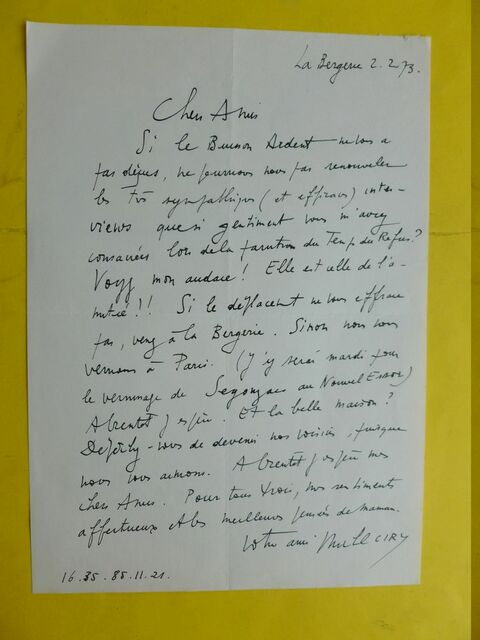 La Bergerie 2.2.73.
Chers Amis
Si le Buisson Ardent ne vous a
pas déçus, ne pourrions nous pas renouveler
les très sympathiques (et efficaces) inter-
views que si gentiment vous m'avez
consacrées lors de la parution du Temps du Refus ?
Voyez mon audace ! Elle est celle de l'a-
mitié !! Si le déplacement ne vous effraie
pas, venez à la Bergerie. Sinon nous nous
verrons à Paris. (J'y serai mardi pour
le vernissage de Segonzac au Nouvel Essor)
A bientôt j'espère. Et la belle maison ?
Dépêchez-vous de devenir nos voisins, puisque
nous vous aimons. A bientôt j'espère mes
chers Amis. Pour tous trois, mes sentiments
affectueux et les meilleures pensées de maman.
Votre ami CIRY
16.35.85.11.21.